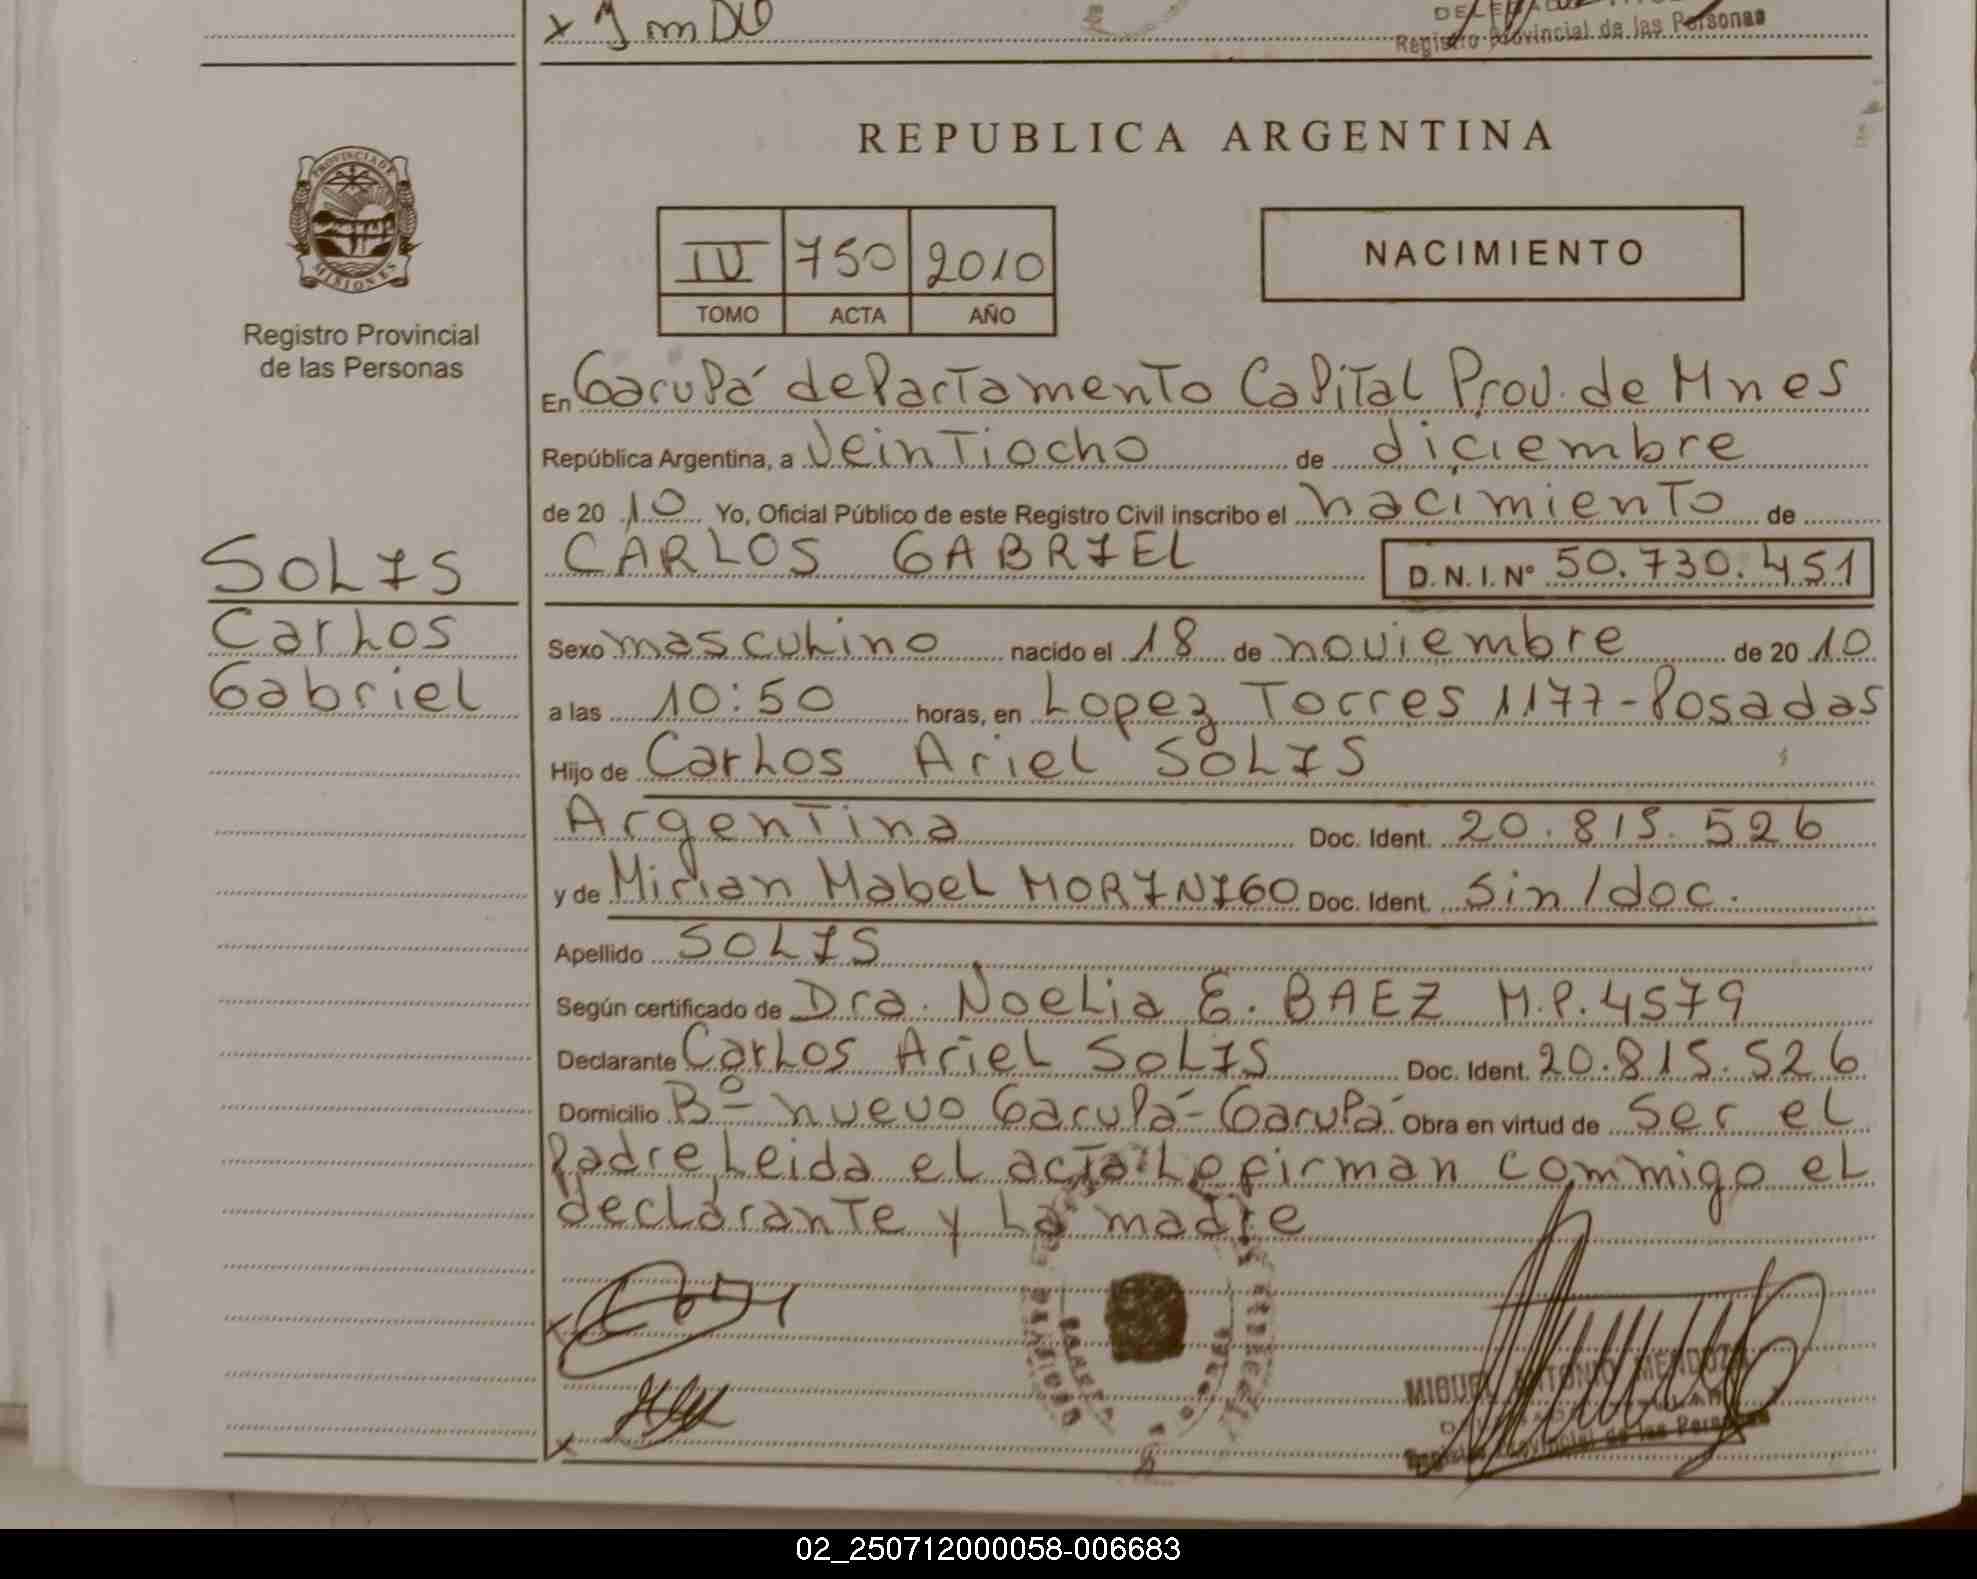 DELEGADO TITULAR
Registro Provincial de las Personas
PROVINCIA DE
MISIONES
Registro Provincial
de las Personas
SOLIS
Carlos
Gabriel
REPUBLICA ARGENTINA
IV 750 2010
TOMO ACTA AÑO
NACIMIENTO
En Garupá departamento Capital Prov. de Mnes
República Argentina, a Veintiocho de diciembre
de 2010 Yo, Oficial Público de este Registro Civil inscribo el nacimiento de
CARLOS GABRIEL D.N.I.Nº 50.730.451
Sexo masculino nacido el 18 de noviembre de 2010
a las 10:50 horas, en Lopez Torres 1177-Posadas
Hijo de Carlos Ariel SOLIS
Argentina Doc. Ident. 20.815.526
y de Mirian Mabel MORINIGO Doc. Ident. Sin/doc.
Apellido SOLIS
Según certificado de Dra. Noelia E. BAEZ M.P.4579
Declarante Carlos Ariel SOLIS Doc. Ident. 20.815.526
Domicilio Bº- nuevo Garupá-Garupá Obra en virtud de ser el
Padre Leida el acta Le firman commigo el
declarante y La madre
MIGUEL ANTONIO MENDOZA
DELEGADO TITULAR
Registro Provincial de las Personas
02_250712000058-006683